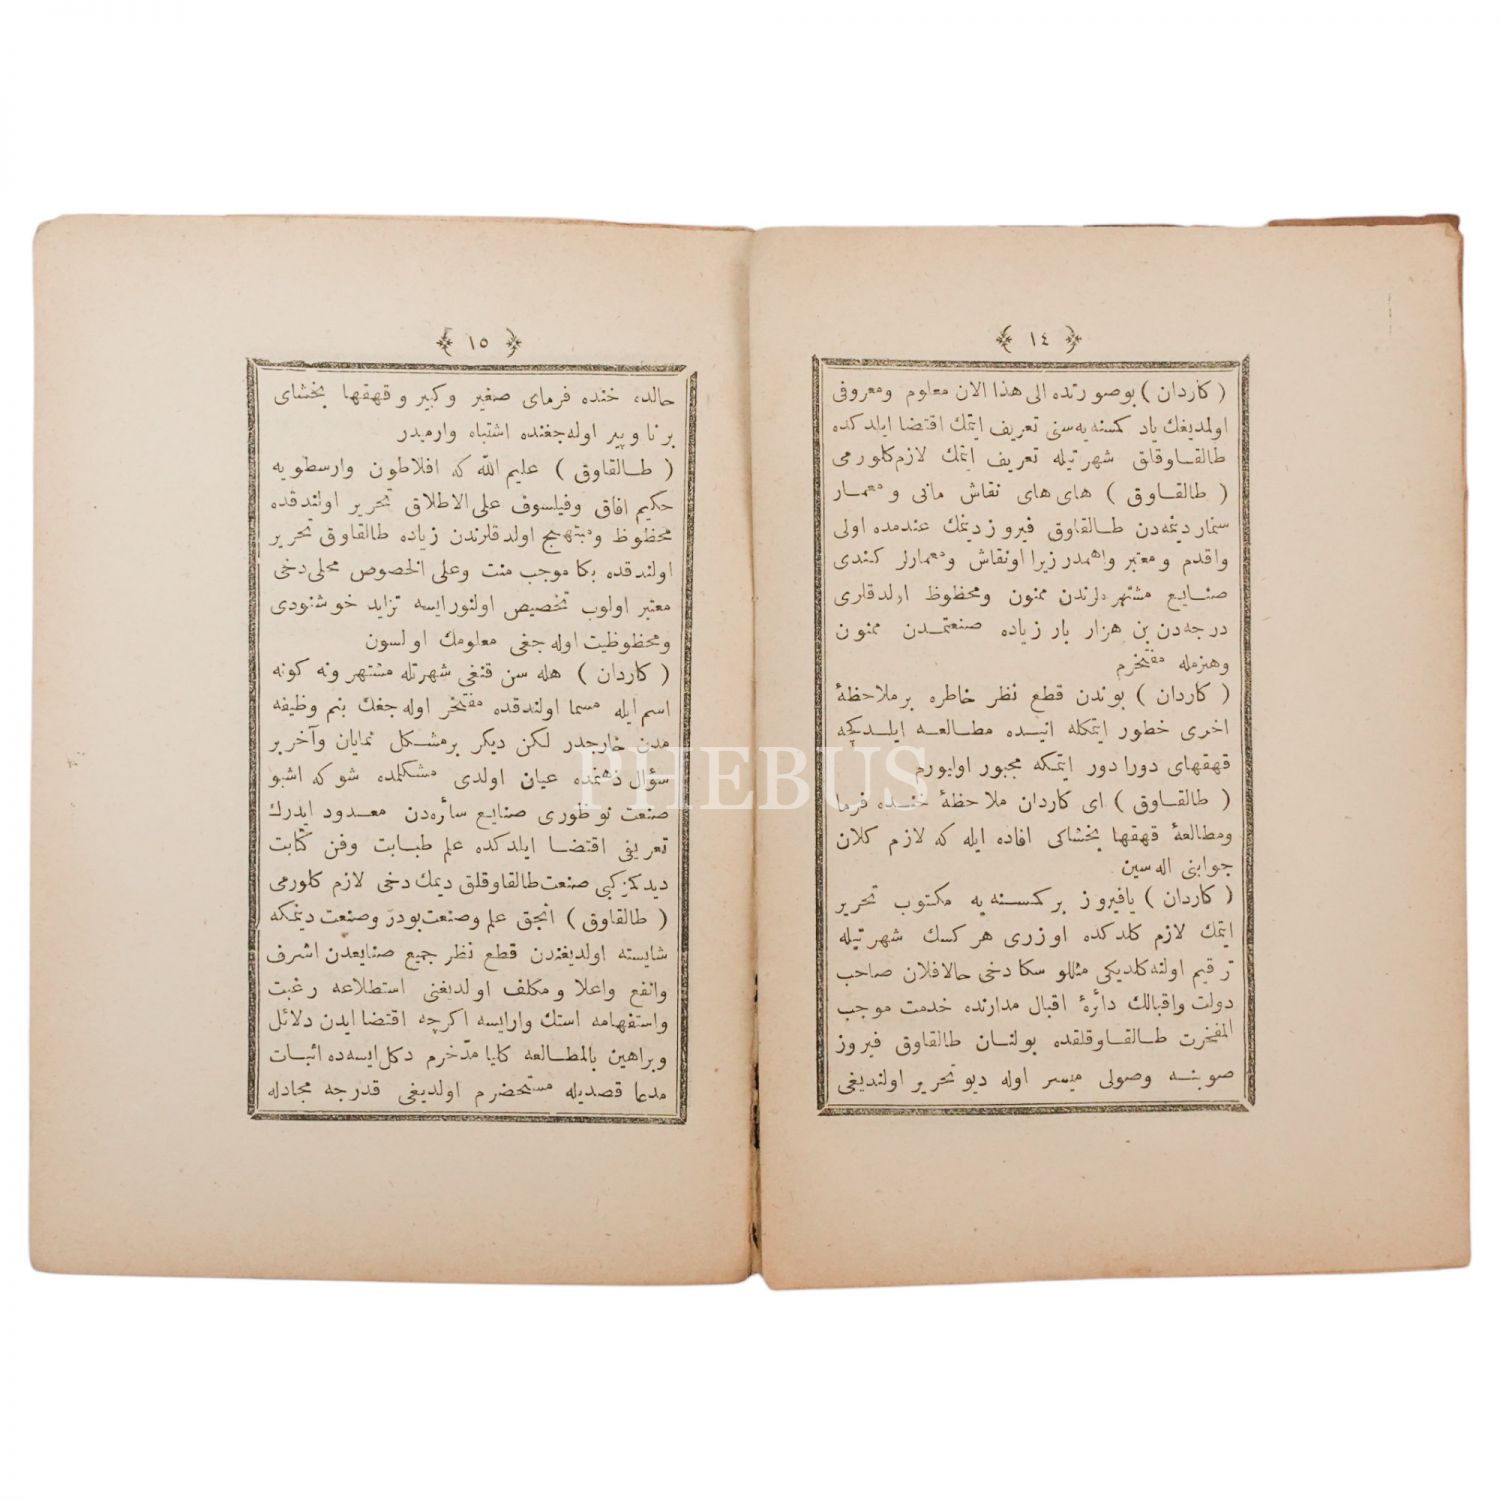 ١٤
( كاردان ) بوصورتده الى هذا الان معلوم ومعروفى
اولمديغك ياد كمسنه‌يه سنى تعريف ايتمك اقتضا ايلدكده
طالقاوقلق شهرتيله تعريف ايتمك لازم كلورمى
( طالقاوق ) هاى هاى نقاش مانى و معمار
سنمار ديمه‌دن طالقاوق فيروز ديمك عندمده اولى
واقدم ومعتبر واهمدر زيرا اونقاش ومعمارلر كندى
صنايع مشتهره‌لرندن ممنون ومحظوظ اولدقلرى
درجه‌دن بن هزار بار زياده صنعتمدن ممنون
وهنرمله مفتخرم
( كاردان ) بوندن قطع نظر خاطره برملاحظهٔ
اخرى خطور ايتمكله انيده مطالعه ايلدكجه
قهقهاى دورا دور ايتمكه مجبور اوليورم
( طالقاوق ) اى كاردان ملاحظهٔ خنده فرما
ومطالعهٔ قهقها بخشاكى افاده ايله كه لازم كلان
جوابنى اله سين
( كاردان ) يافيروز بر كمسنه يه مكتوب تحرير
ايتمك لازم كلدكده اوزرى هر كسك شهرتيله
ترقيم اولنه كلديكى مثللو سكا دخى حالا فلان صاحب
دولت واقبالك دائرهٔ اقبال مدارنده خدمت موجب
المفخرت طالقاوقلقده بولنان طالقاوق فيروز
صوبنه وصولى ميسر اوله ديو تحرير اولنديغى
١٥
حالده خنده فرماى صغير وكبير وقهقها بخشاى
برنا وپير اوله جغنده اشتباه وارميدر
( طالقاوق ) عليم الله كه افلاطون وارسطويه
حكيم افاق وفيلسوف على الاطلاق تحرير اولندقده
محظوظ ومبتهج اولدقلرندن زياده طالقاوق تحرير
اولندقده بكا موجب منت وعلى الخصوص محلى دخى
معتبر اولوب تخصيص اولنورايسه تزايد خوشنودى
ومحظوظيت اوله جغى معلومك اولسون
( كاردان ) هله سن قنغى شهرتله مشتهر ونه كونه
اسم ايله مسما اولندقده مفتخر اوله جغك بنم وظيفه
مدن خارجدر لكن ديكر برمشكل نمايان وآخر بر
سؤال ذهنمده عيان اولدى مشكلمده شو كه اشبو
صنعت نوظهورى صنايع سائره‌دن معدود ايدرك
تعريفى اقتضا ايلدكده علم طبابت وفن كتابت
ديدكمز كبى صنعت طالقاوقلق ديمك دخى لازم كلورمى
( طالقاوق ) انجق علم وصنعت بودر وصنعت ديمكه
شايسته اولديغندن قطع نظر جميع صنايعدن اشرف
وانفع واعلا ومكلف اولديغنى استطلاعه رغبت
واستفهامه استك وارايسه اكرچه اقتضا ايدن دلائل
وبراهين بالمطالعه كايا مدّخرم دكل ايسه‌ده اثبات
مدعا قصديله مستحضرم اولديغى قدرجه مجادله
PHEBUS